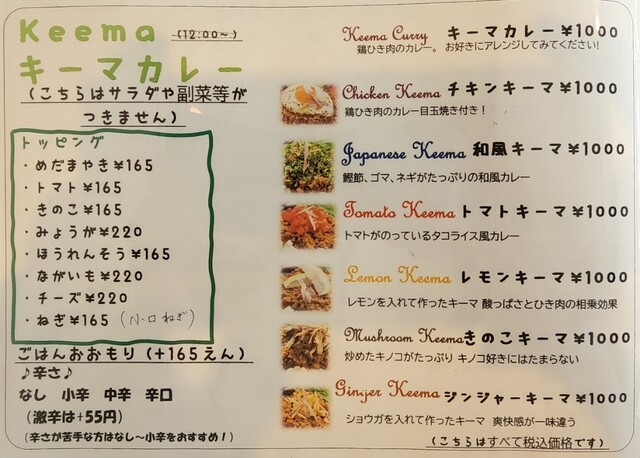 Keema (12:00~)
キーマカレー
(こちらはサラダや副菜等が
つきません)
トッピング
・めだまやき¥165
・トマト¥165
・きのこ¥165
・みょうが¥220
・ほうれんそう¥165
・ながいも¥220
・チーズ¥220
・ねぎ¥165 (小口ねぎ)
ごはんおおもり (+165えん)
♪辛さ♪
なし 小辛 中辛 辛口
(激辛は+55円)
(辛さが苦手な方はなし~小辛をおすすめ!)
Keema Curry キーマカレー¥1000
鶏ひき肉のカレー。 お好きにアレンジしてみてください!
Chicken Keema チキンキーマ¥1000
鶏ひき肉のカレー目玉焼き付き!
Japanese Keema 和風キーマ¥1000
鰹節、ゴマ、ネギがたっぷりの和風カレー
Tomato Keema トマトキーマ¥1000
トマトがのっているタコライス風カレー
Lemon Keema レモンキーマ¥1000
レモンを入れて作ったキーマ 酸っぱさとひき肉の相乗効果
Mushroom Keema きのこキーマ¥1000
炒めたキノコがたっぷり キノコ好きにはたまらない
Ginjer Keema ジンジャーキーマ¥1000
ショウガを入れて作ったキーマ 爽快感が一味違う
(こちらはすべて税込価格です)